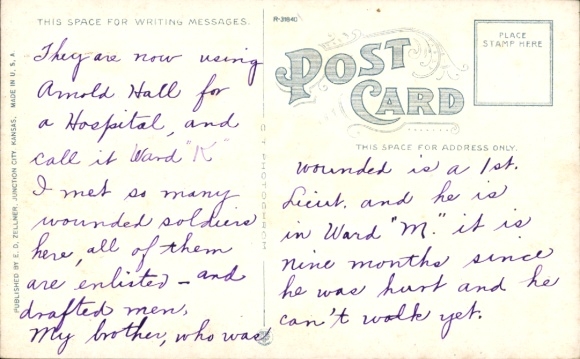 THIS SPACE FOR WRITING MESSAGES.
They are now using
Arnold Hall for
a Hospital, and
call it Ward "K"
I met so many
wounded soldiers
here, all of them
are enlisted - and
drafted men.
My brother, who was
PUBLISHED BY E. D. ZELLNER, JUNCTION CITY, KANSAS. MADE IN U. S. A.
R-31840
POST CARD
PLACE
STAMP HERE
THIS SPACE FOR ADDRESS ONLY.
wounded is a 1st.
Lieut. and he is
in Ward "M." it is
nine months since
he was hurt and he
can't walk yet.